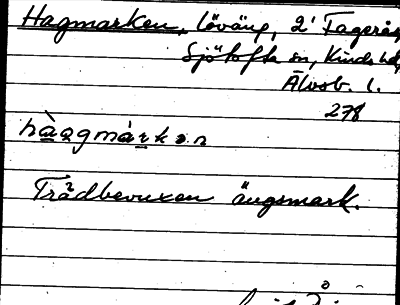 Hagmarken, löväng, 2' Fagerås,
Sjötofta sn, Kinds hd,
Älvsb. l.
278
hàagmàrkən
Trädbevuxen ängsmark.